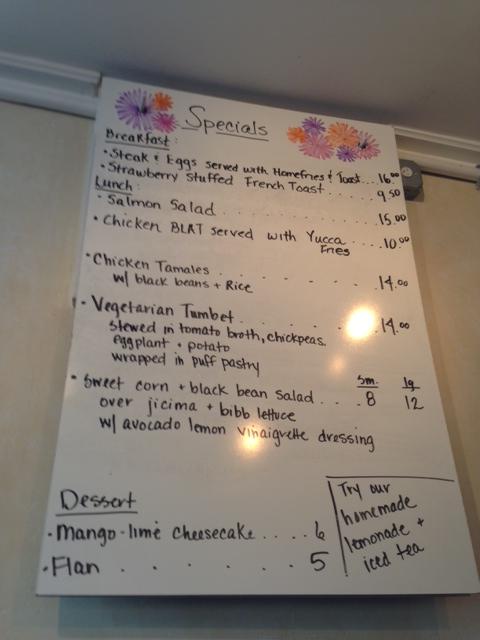 Specials
Breakfast:
• Steak & Eggs served with Homefries & Toast... 16.00
• Strawberry Stuffed French Toast...... 9.50
Lunch:
• Salmon Salad.......... 15.00
• Chicken BLAT served with Yucca Fries .... 10.00
• Chicken Tamales....... 14.00
w/ black beans + Rice
• Vegetarian Tumbet....... 14.00
stewed in tomato broth, chickpeas,
eggplant + potato
wrapped in puff pastry
sm. lg
• Sweet corn + black bean Salad... 8 12
over jicima + bibb lettuce
w/ avocado lemon vinaigrette dressing
Dessert
• Mango-lime cheesecake.... 6
• Flan ...... 5
Try our
homemade
lemonade +
iced tea